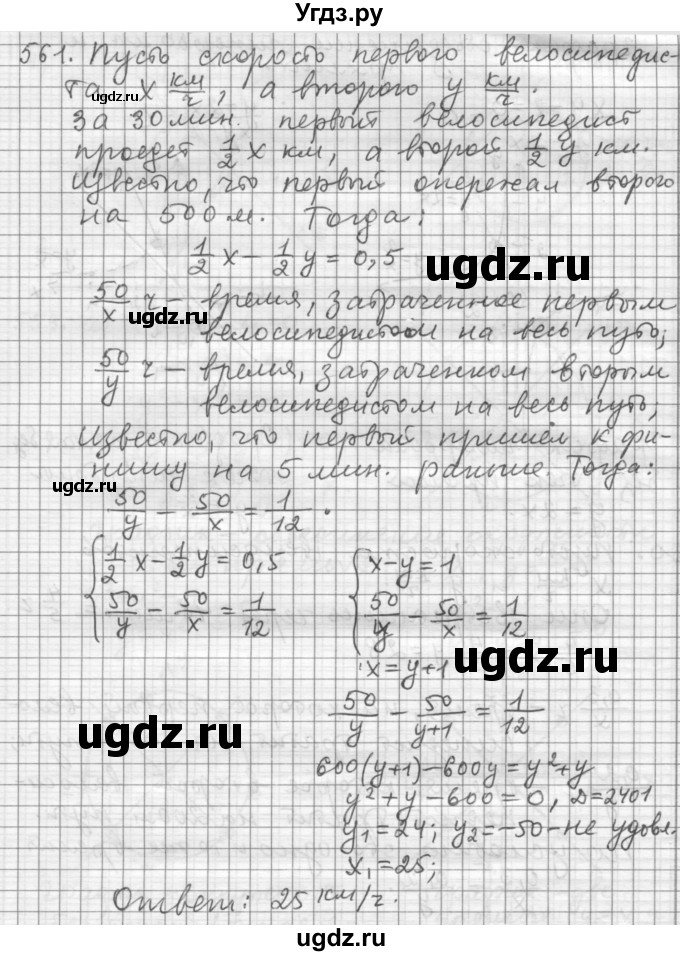 Угдз.ру
561. Пусть скорость первого велосипедис-
та x км/ч, а второго y км/ч.
За 30 мин. первый велосипедист
проедет 1/2 x км, а второй 1/2 y км.
Известно, что первый опережал второго
на 500 м. Тогда:
1/2 x - 1/2 y = 0,5
50/x ч - время, затраченное первым
велосипедистом на весь путь;
50/y ч - время, затраченном вторым
велосипедистом на весь путь;
Известно, что первый пришёл к фи-
нишу на 5 мин. раньше. Тогда:
50/y - 50/x = 1/12.
{ 1/2 x - 1/2 y = 0,5 { x - y = 1
50/y - 50/x = 1/12 50/y - 50/x = 1/12
x = y+1
50/y - 50/(y+1) = 1/12
600(y+1) - 600y = y²+y
y²+y-600=0, D=2401
y₁=24; y₂=-50 - не удовл.
x₁=25;
Ответ: 25 км/ч.
uдgz.ru
ugdz.ru
ugdz.ru
ugdz.ru
ugdz.ru
ugdz.ru
ugdz.ru
ugdz.ru